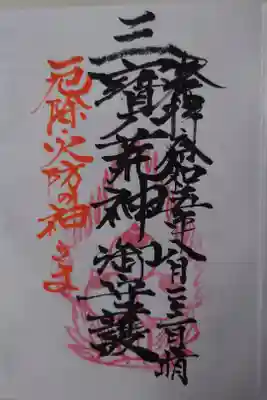 奉拝 令和五年八月二三日晴
三寳荒神 御守護
厄除火防の神さま